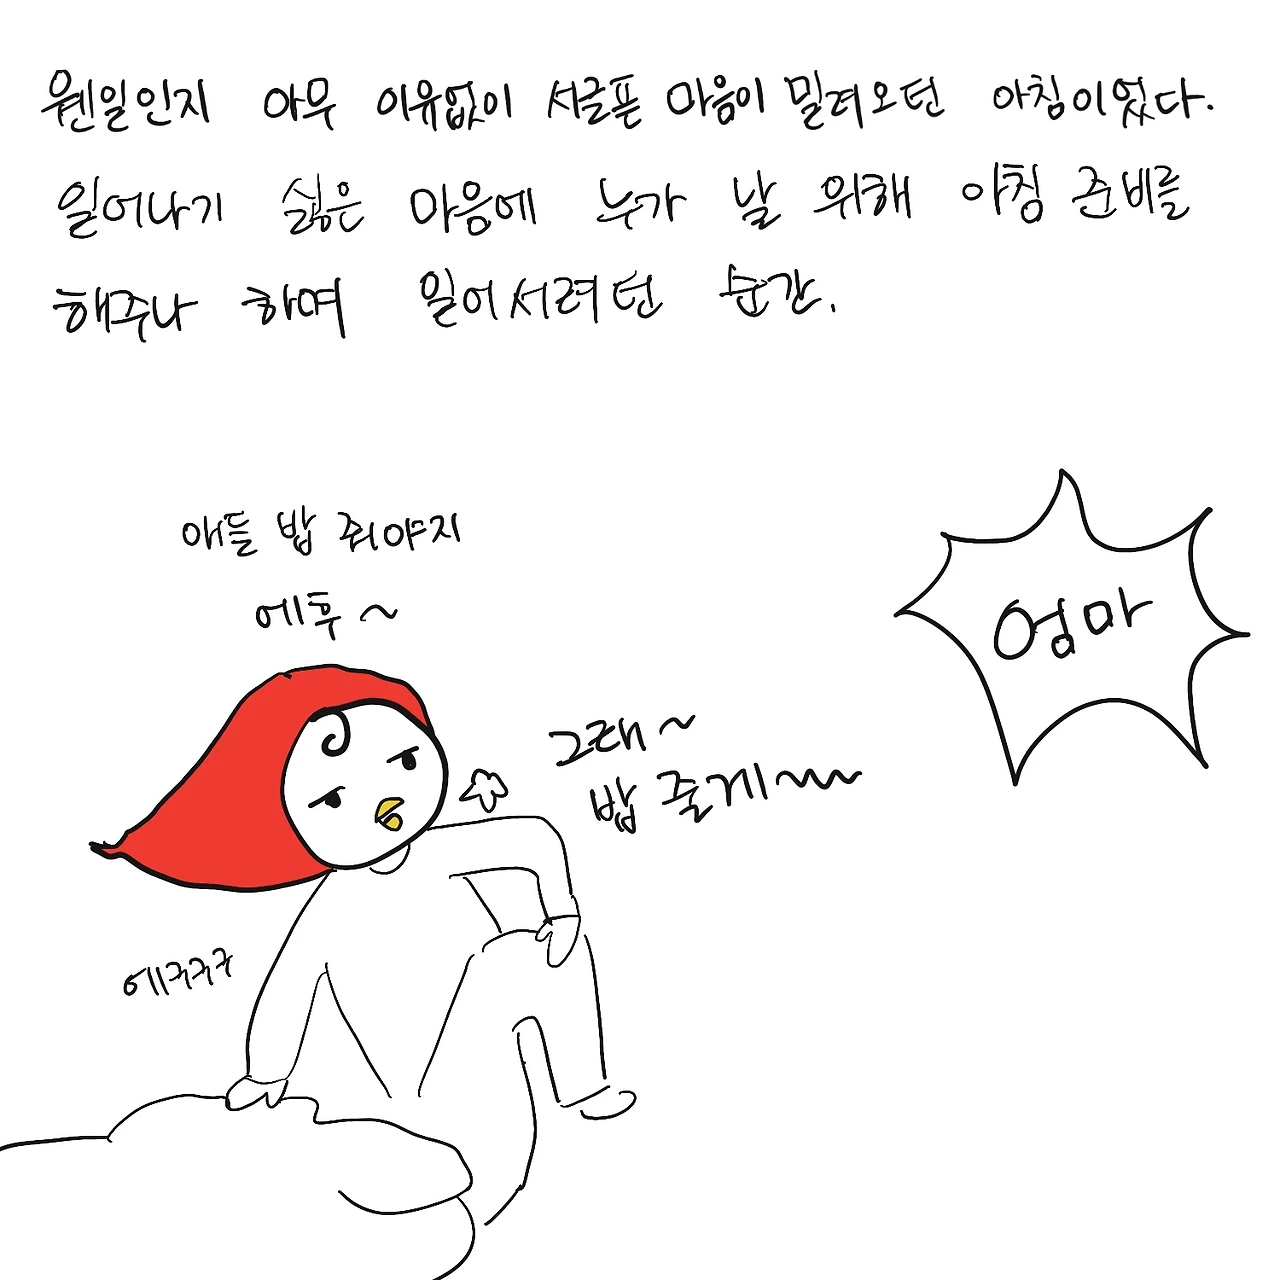 웬일인지 아무 이유없이 서글픈 마음이 밀려오던 아침이었다.
일어나기 싫은 마음에 누가 날 위해 아침 준비를
해주나 하며 일어서려던 순간.
애들 밥 줘야지
에휴~
엄마
그래~
밥 줄게~~~
에구구구